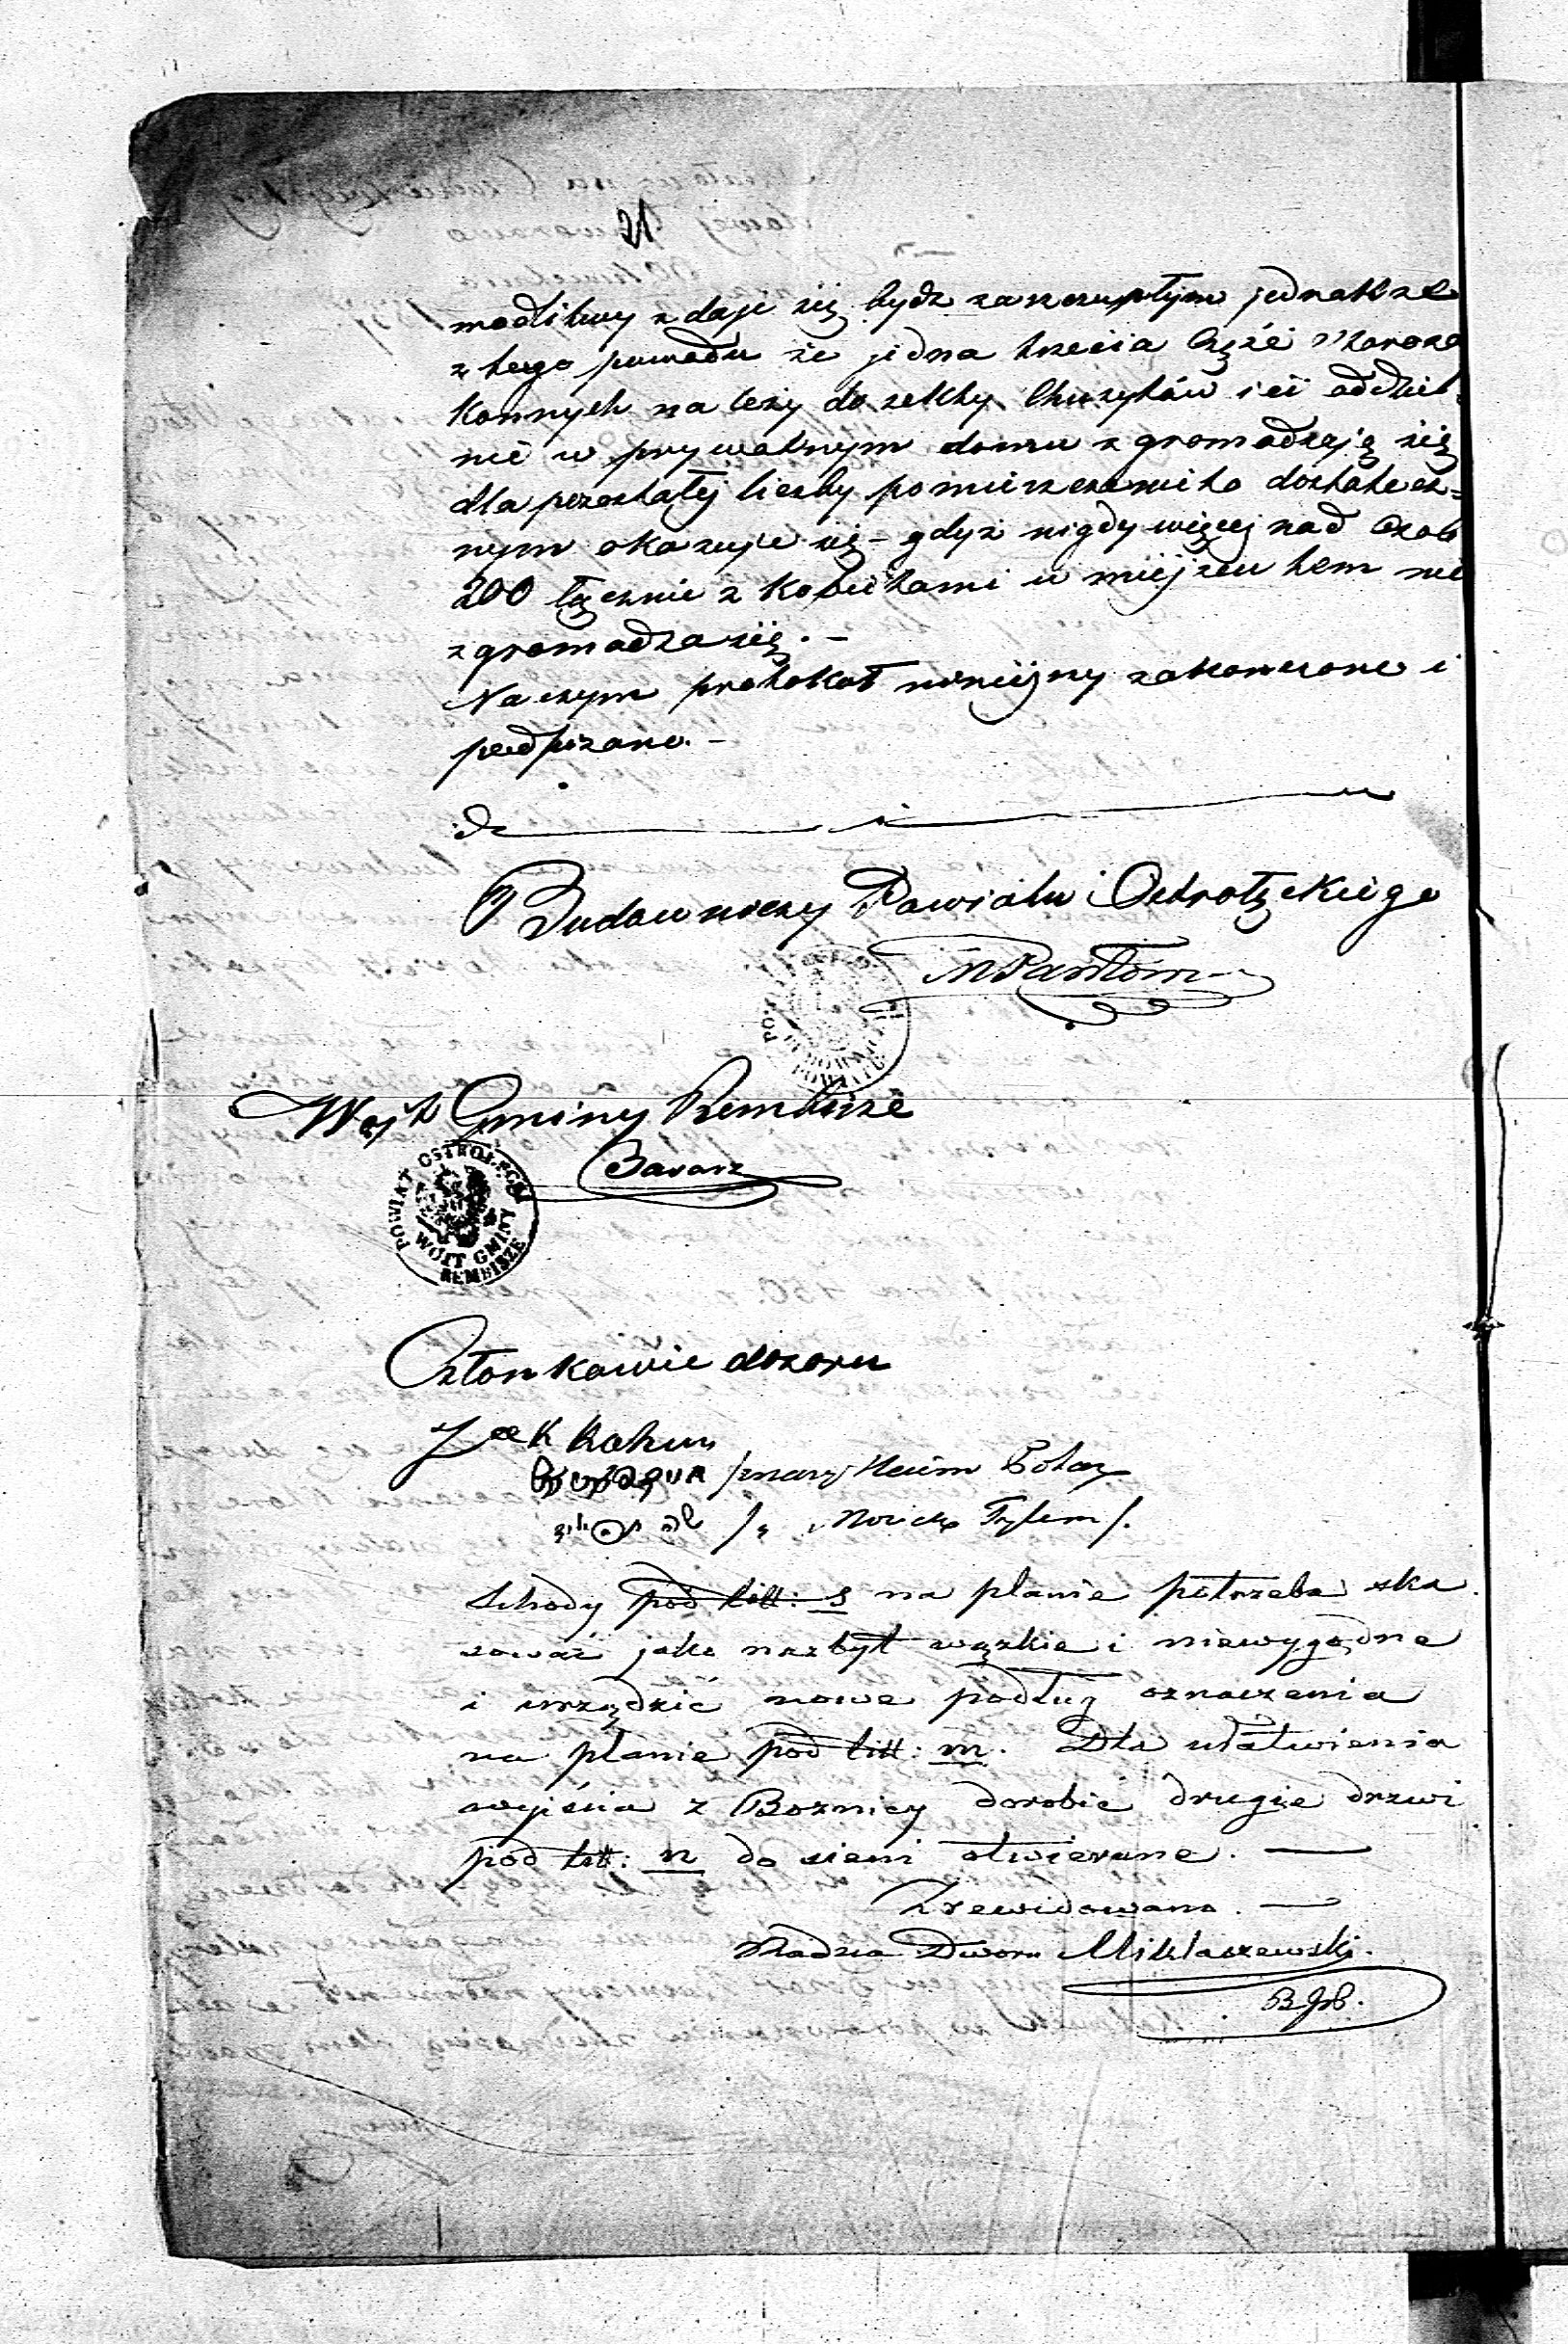 21
modlitwy zdaje się bydź zaszczupłym jednakże
z tego powodu że jedna trzecia Część Starozakonnych
należy do sekty Chusytów i ci oddziel-
nie w prywatnym domu zgromadzają się
dla pozostałéj liczby pomieszczenie to dostatecz=
nym okazuje się – gdyż nigdy więcej nad Osób
200 łącznie z Kobietami w miejscu tem nie
zgromadza się. –
Na czym protokół niniejszy zakończono i
podpisano. –
Budowniczy Powiatu Ostrołęckiego
Wójt Gminy Rembisze
POWIAT OSTROŁĘCKI
WÓJT GMINY
REMBISZE
Członkowie dozoru
Icek Kohun
/znaczy Heim
/ " Moszek Tylem /.
Schody pod litt: s na planie potrzeba ska
sować jako nazbyt wązkie i niewygodne
i urządzić nowe podług oznaczenia
na planie pod litt: m. Dla ułatwienia
wyjścia z Boznicy dorobić drugie drzwi
pod litt: n do sieni otwierane. —
Zrewidowano. —
Radzca Dworu Miklaszewski.
B.Gub.